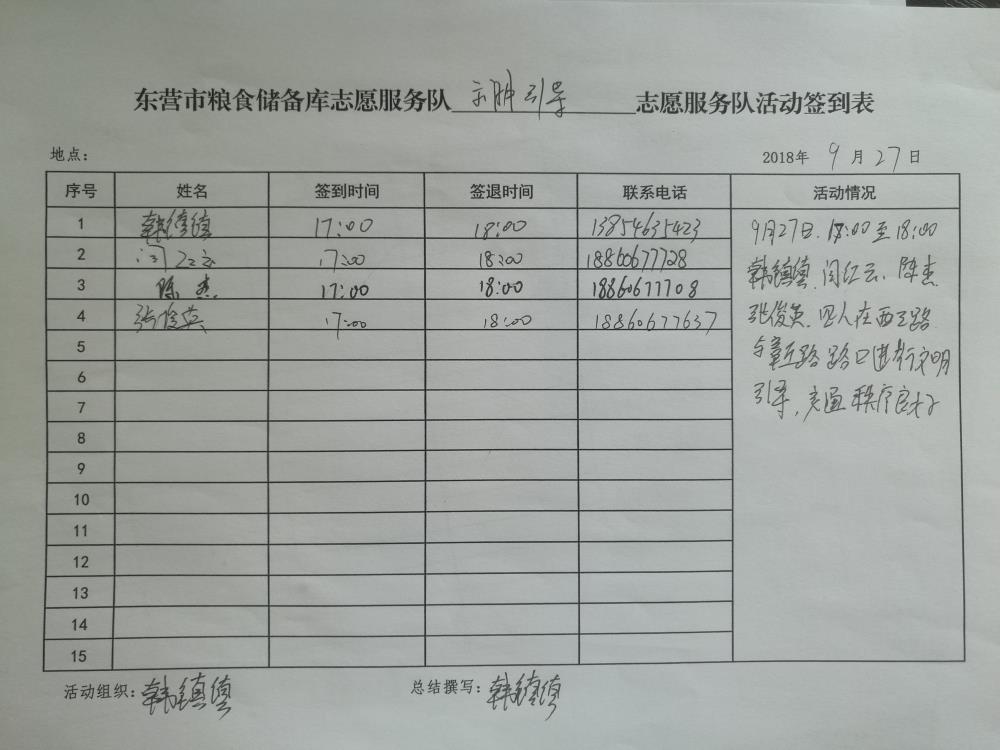 东营市粮食储备库志愿服务队 文明引导 志愿服务队活动签到表
地点： 2018年 9 月 27 日
序号 姓名 签到时间 签退时间 联系电话 活动情况
1 韩镇镇 17:00 18:00 13854635423
2 闫红云 17:00 18:00 18860677728
3 陈杰 17:00 18:00 18860677708
4 张俊英 17:00 18:00 18860677637
5
6
7
8
9
10
11
12
13
14
15
9月27日.17:00至18:00
韩镇镇.闫红云.陈杰
张俊英.四人在西三路
与路口进行文明
引导,交通秩序良好
活动组织：韩镇镇 总结撰写：韩镇镇